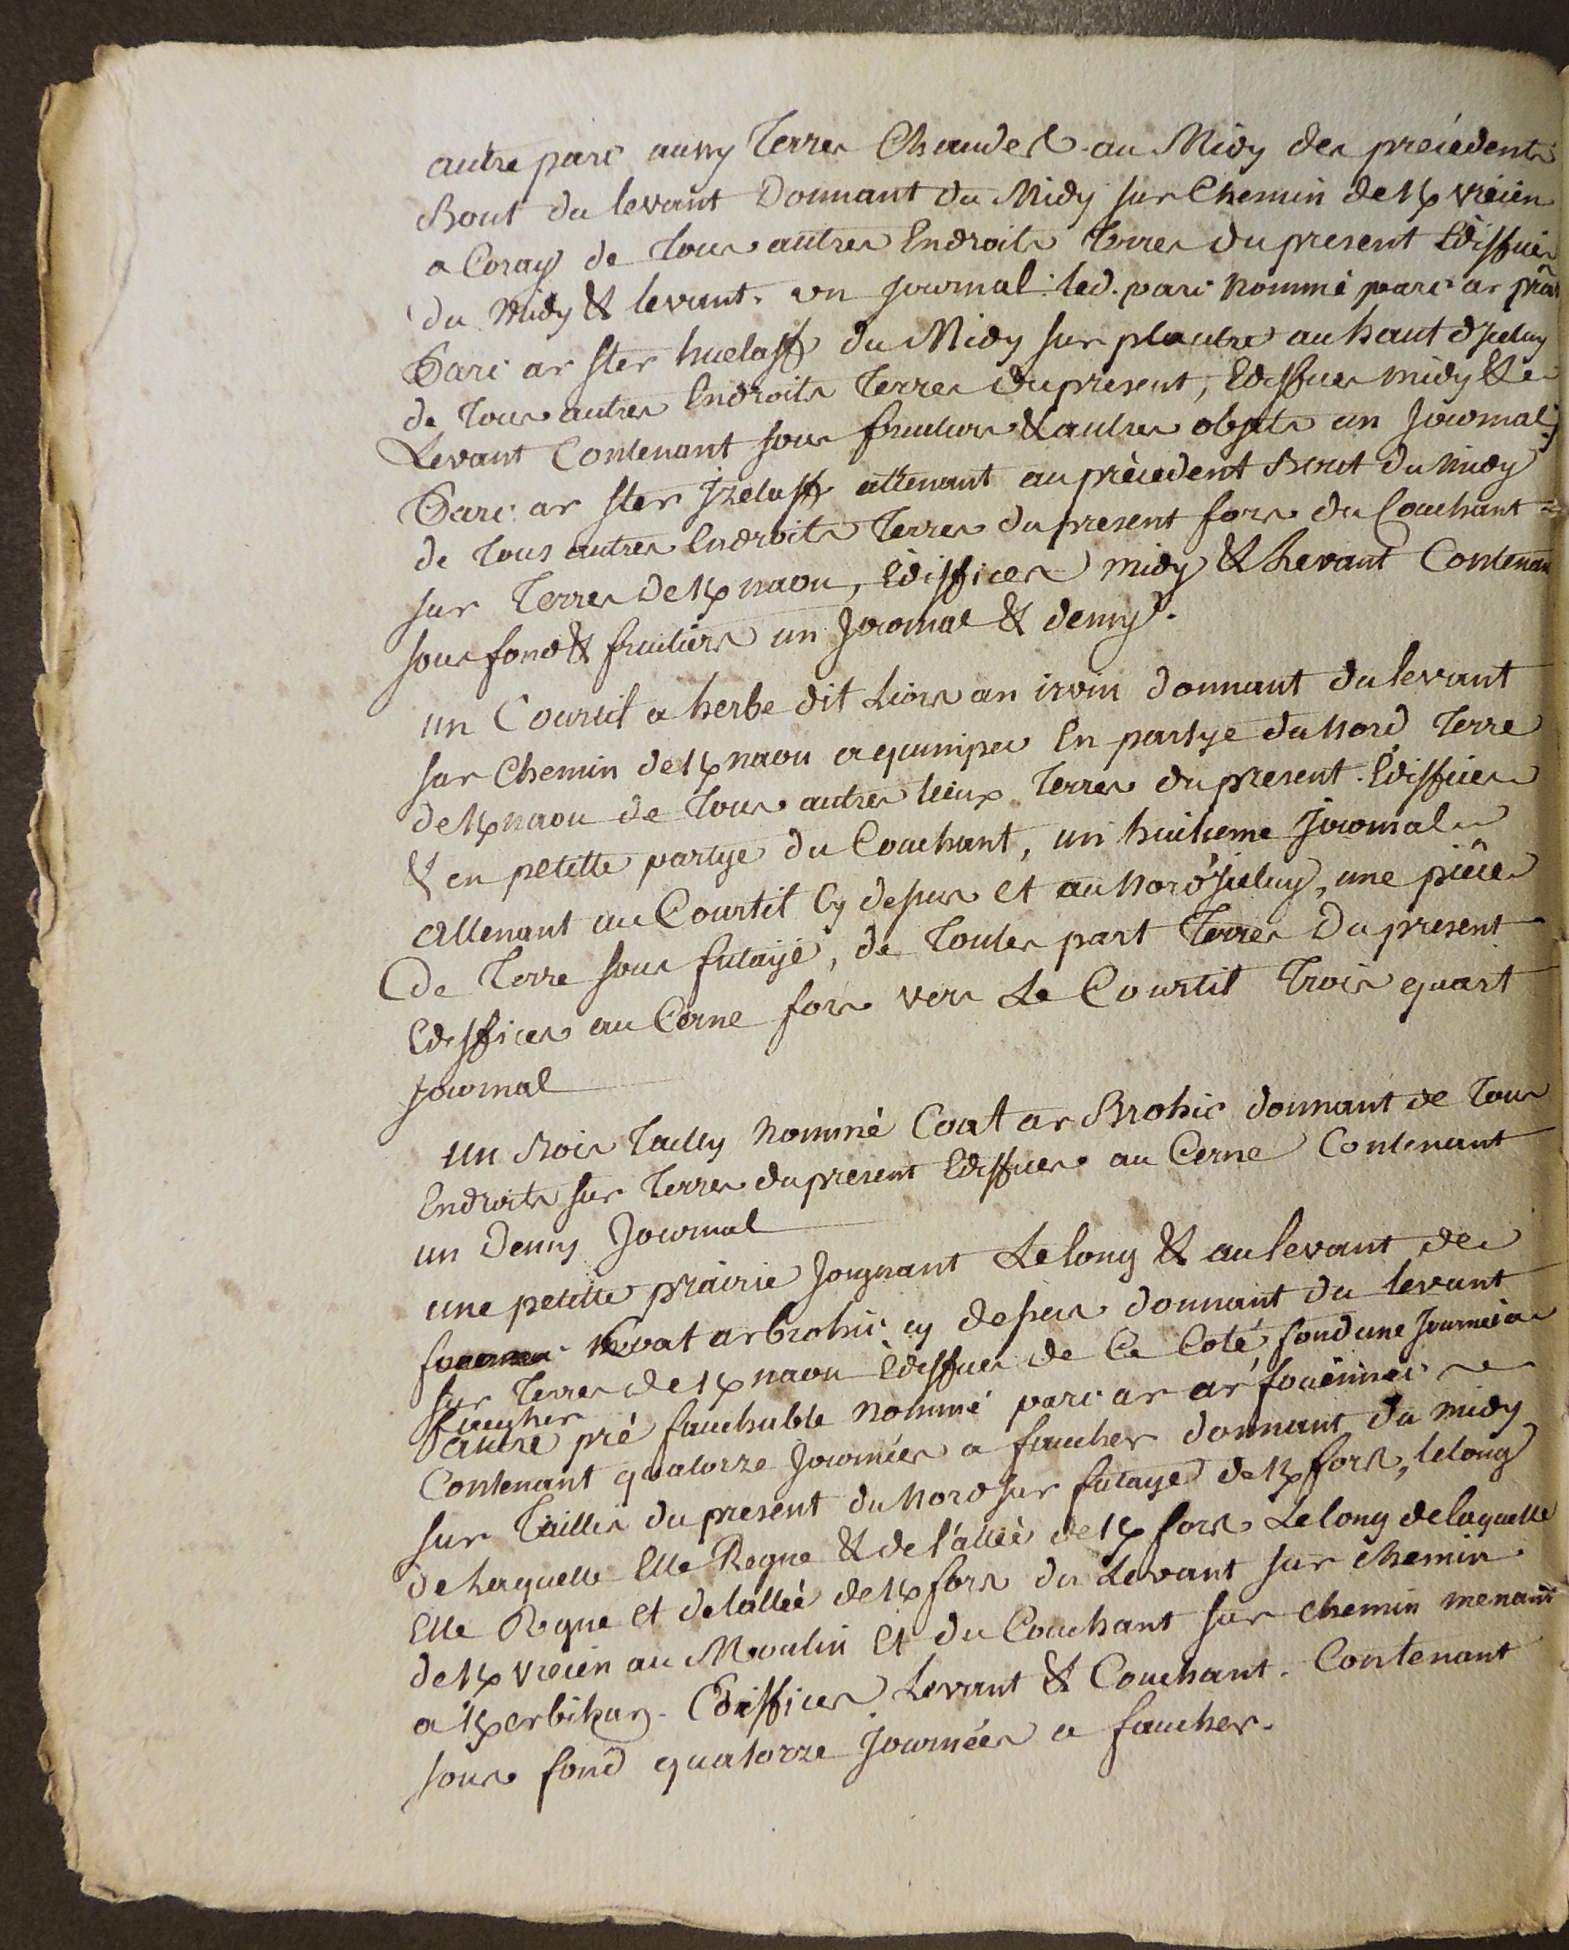 autre parc aussy Terres Chaudes au Midy des précédents
Bout du levant Donnant du Midy sur Chemin de Kvreien
a Coray de Tous autres Endroits Terres du present Ediffices
du midy & levant. un journal. led. parc nommé parc ar prat
Parc ar ster huelaff du Midy sur placître au haut d'jceluy
de Tous autres Endroits Terres du present, Ediffices midy & 
Levant Contenant sous fruitiers & autres objets un Journal
Parc ar ster Jzelaff attenant au précédent Bout du midy
de Tous autres Endroits Terres du present fors du Couchant
sur Terres de Knaou, Ediffices midy & Levant Contenan
sous fond & fruitiers un Journal & demy.
un Courtil a herbe dit Liors an irvin donnant du levant
sur Chemin de Knaou a quimper En partye du Nord Terre
de Knaou de Tous autres lieux Terres du present. Ediffices
& en petitte partye du Couchant, un huitieme Journal
Attenant au Courtil Cy depus et au Nord jceluy, une pièce
de Terre sous futaye, de Toutes part Terres Du present
Ediffices au Cerne fors vers Le Courtil Trois quart
Journal
un Bois Tailly Nommé Coat ar Brohic donnant de Tous
Endroits sur Terres du present Ediffices au Cerne Contenant
un Demy Journal
une petitte prairie Joignant Le long & au levant de
Coat ar brohic cy depus donnant du levant
sur Terres de Knaou Ediffices de Ce Coté, fond une Journée a
faucher
autre pré fauchable nommé parc ar ar foüennec
Contenant quatorze Journées a faucher donnant du midy
sur Taillis du present du Nord sur futaye de Kfors, le long
de Laquelle Elle Regne & de l'allée de Kfors Le long de laquelle
Elle Regne et de l'allée de Kfors du Levant sur chemin
de Kvreien au Moulin Et du Couchant sur chemin menant
a Ediffices Levant & Couchant. Contenant
sous fond quatorze Journées a faucher.